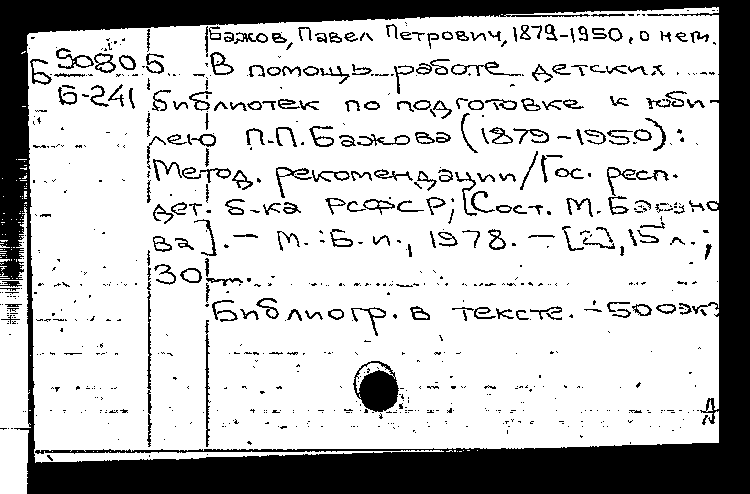 Бажов, Павел Петрович, 1879-1950, о нем.
Б 9080.5
Б-241
В помощь работе детских
библиотек по подготовке к юби-
лею П.П.Бажова (1879-1950):
Метод. рекомендации/Гос. респ.
дет. б-ка РСФСР; [Сост. М. Барано
ва]. - М. : Б.и., 1978. - [2], 15 л.;
30
Библиогр. в тексте. - 500 экз